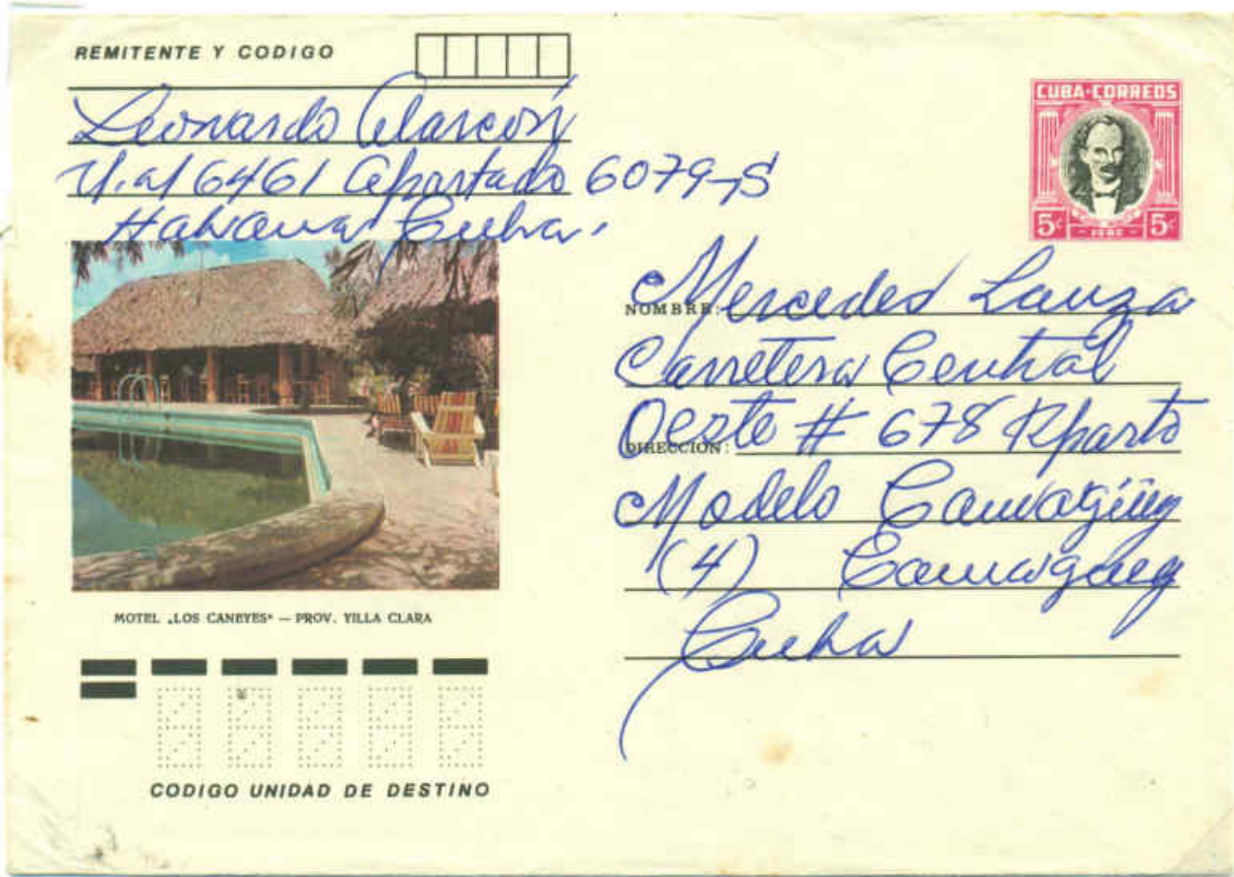 REMITENTE Y CODIGO
Leonardo Alarcón
U.M 6461 Apartado 6079-S
Habana Cuba.
CUBA·CORREOS
5c 1982 5c
NOMBRE: Mercedes Lauza
Carretera Central
DIRECCION: Oeste # 678 Rparto
Modelo Camagüey
(4) Camagüey
Cuba
MOTEL „LOS CANEYES“ — PROV. VILLA CLARA
CODIGO UNIDAD DE DESTINO